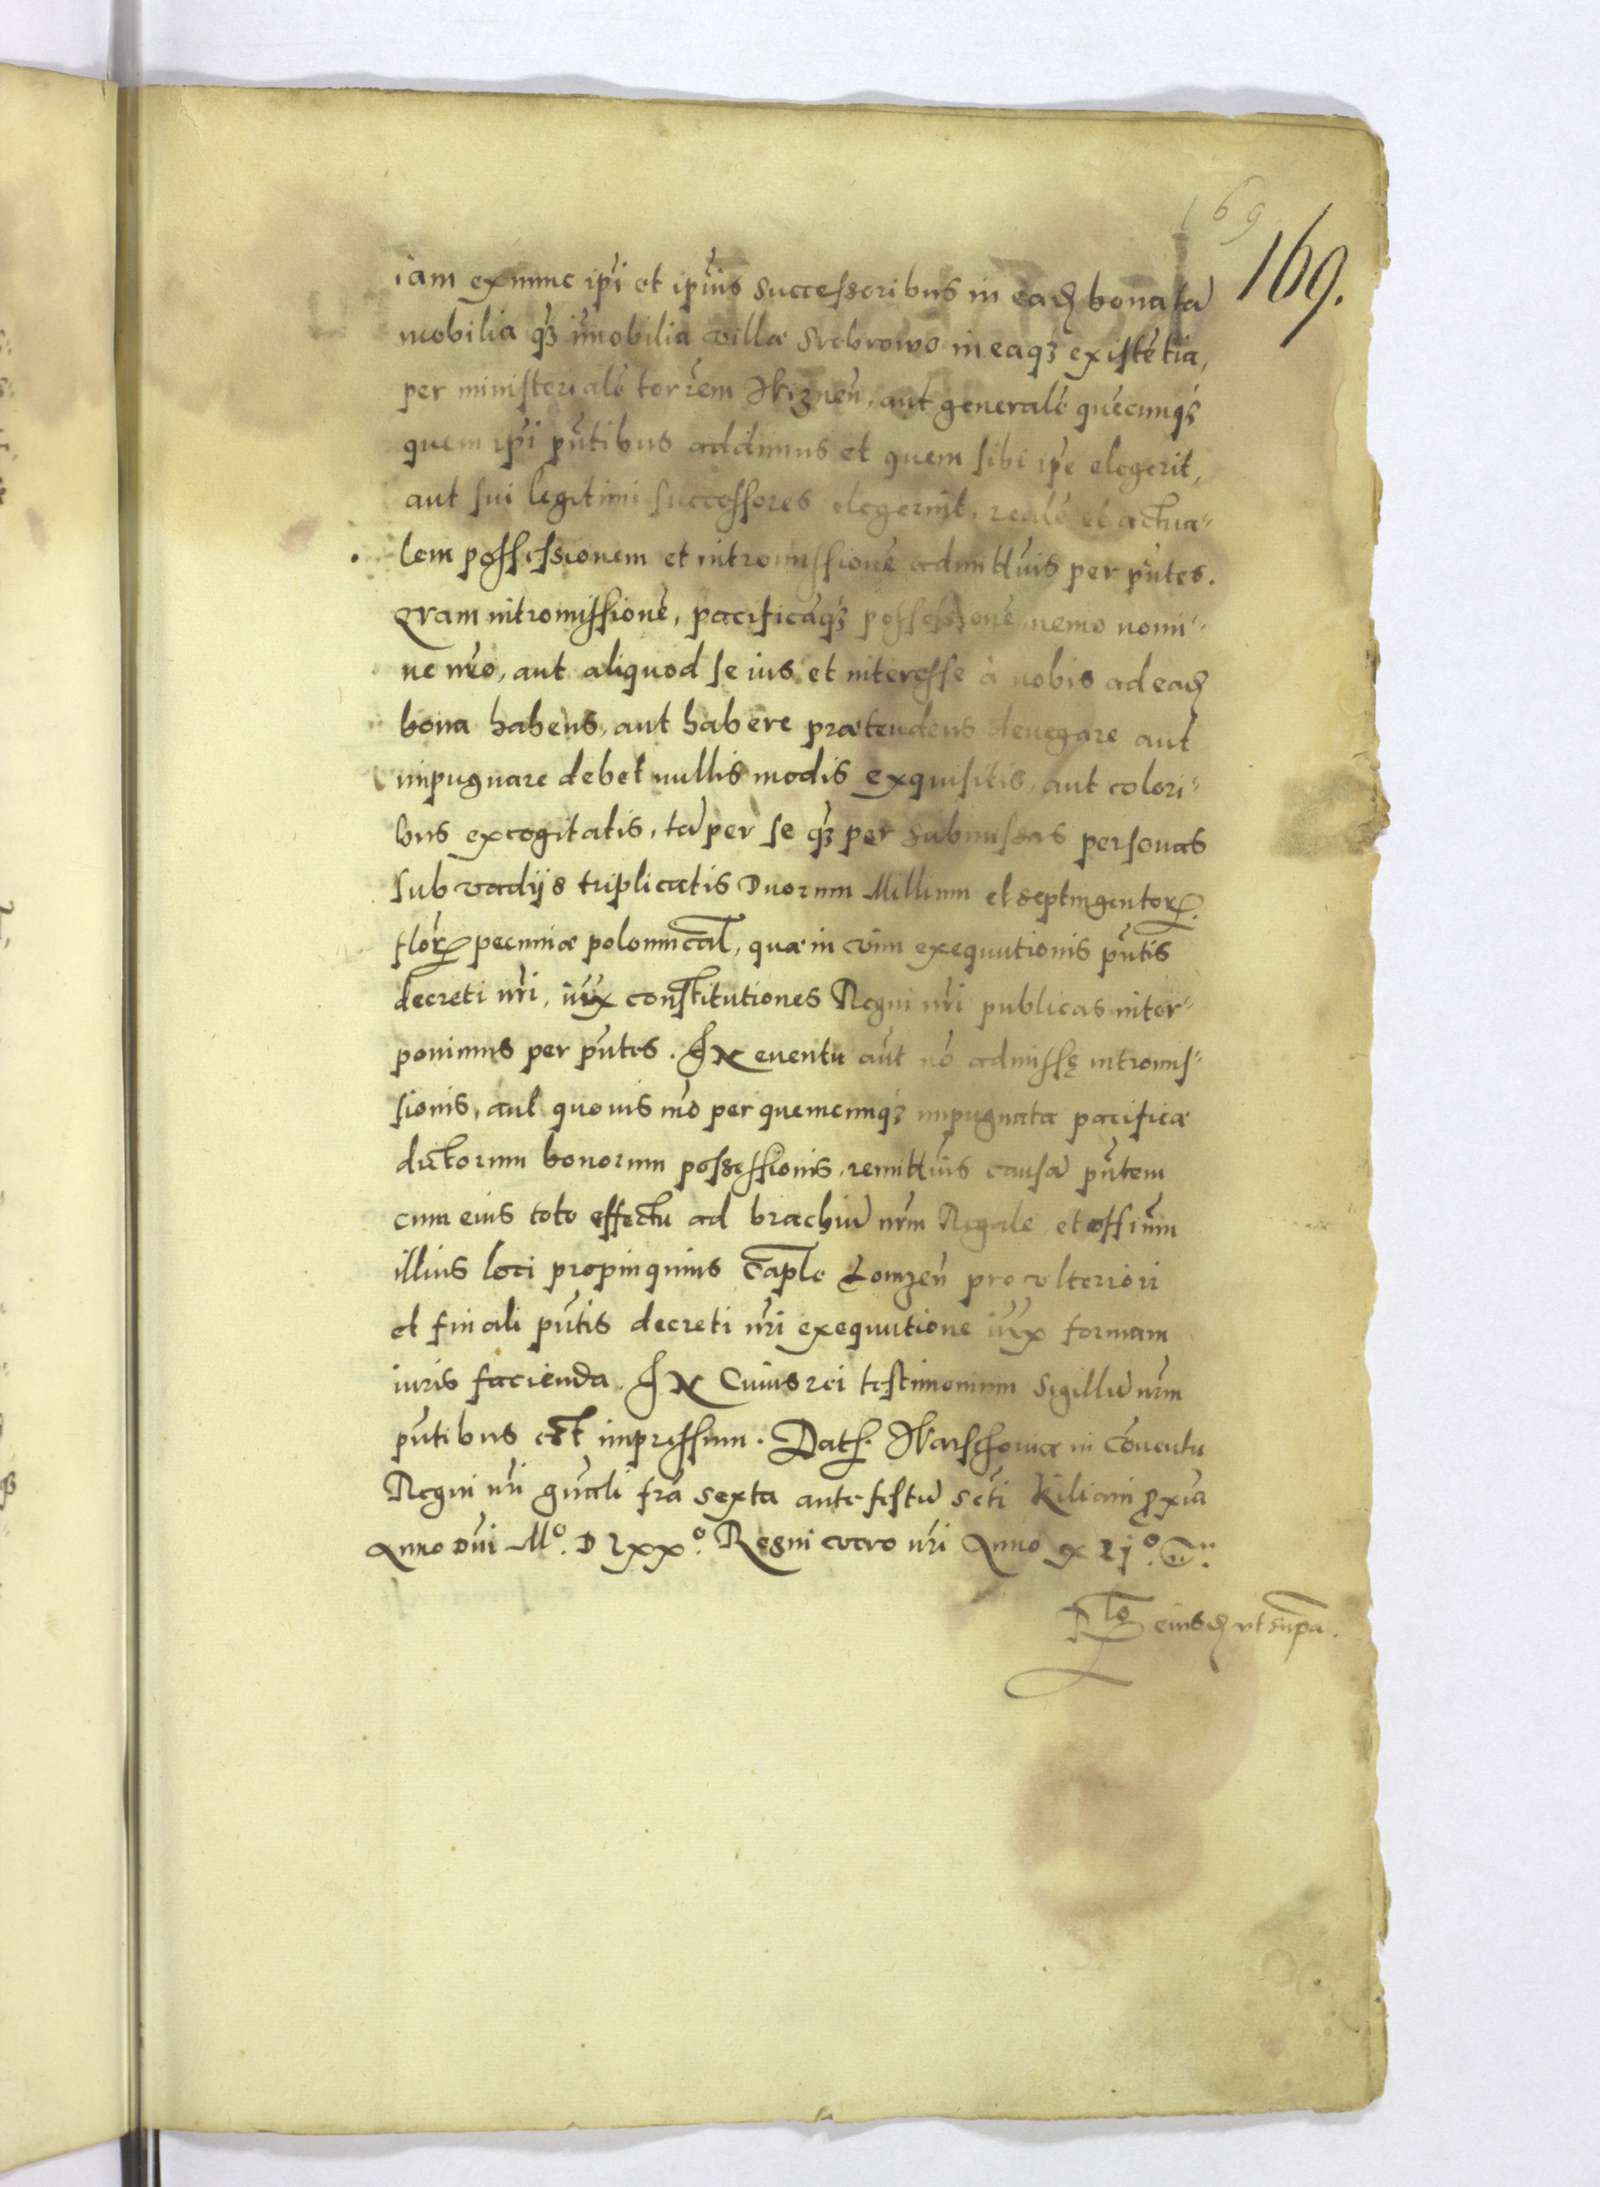 169
169.
iam exnunc ip̃i et ip̃ius successoribus in eadẽ bona tã
mobilia q̃ꝫ im̃obilia villæ Srebrowo in eaqꝫ existẽtia,
per ministerialẽ terrẽm Wiznẽn, aut generalẽ quẽcunqꝫ
quem ip̃i pñtibus addimus et quem sibi ip̃e elegerit,
aut sui legitimi successores elegerint, realẽ et actua-
lem possessionem et intromissionẽ admittim̃s per pñtes.
Qvam intromissionẽ, pacificãqꝫ possessionẽ, nemo nomi-
ne nr̃o, aut aliquod se ius et interesse à nobis ad eadẽ
bona habens, aut habere prætendens denegare aut
impugnare debet nullis modis exquisitis, aut colori-
bus excogitatis, tã per se q̃ꝫ per submissas personas
sub vadijs triplicatis Duorum Millium et septingentorꝝ
flor̃ꝝ pecuniæ polonical̃, quæ in vim exequutionis pñtis
decreti nr̃i, iux̃ constitutiones Regni nr̃i publicas inter-
ponimus per pñtes. IN euentu aũt nõ admissę intromis-
sionis, aut quouis mõ per quemcunqꝫ impugnatæ pacificæ
dictorum bonorum possessionis, remittim̃s causã pñtem
cum eius toto effectu ad brachiũ nr̃m Regale et offiũm
illius loci propinquius Cap̃le Łomzeñ pro vlteriori
et finali pñtis decreti nr̃i exequutione iux̃ formam
iuris facienda. IN Cuius rei testimonium Sigillũ nr̃m
pñtibus est impressum. Dat̃. Warschouiæ in cõuentu
Regni nr̃i gñali fr̃a sexta ante festũ scti Kiliani ꝓxĩa
Anno Dñi Mº. D lxxº. Regni vero nr̃i Anno xljº.
eiusdẽ vt supra.